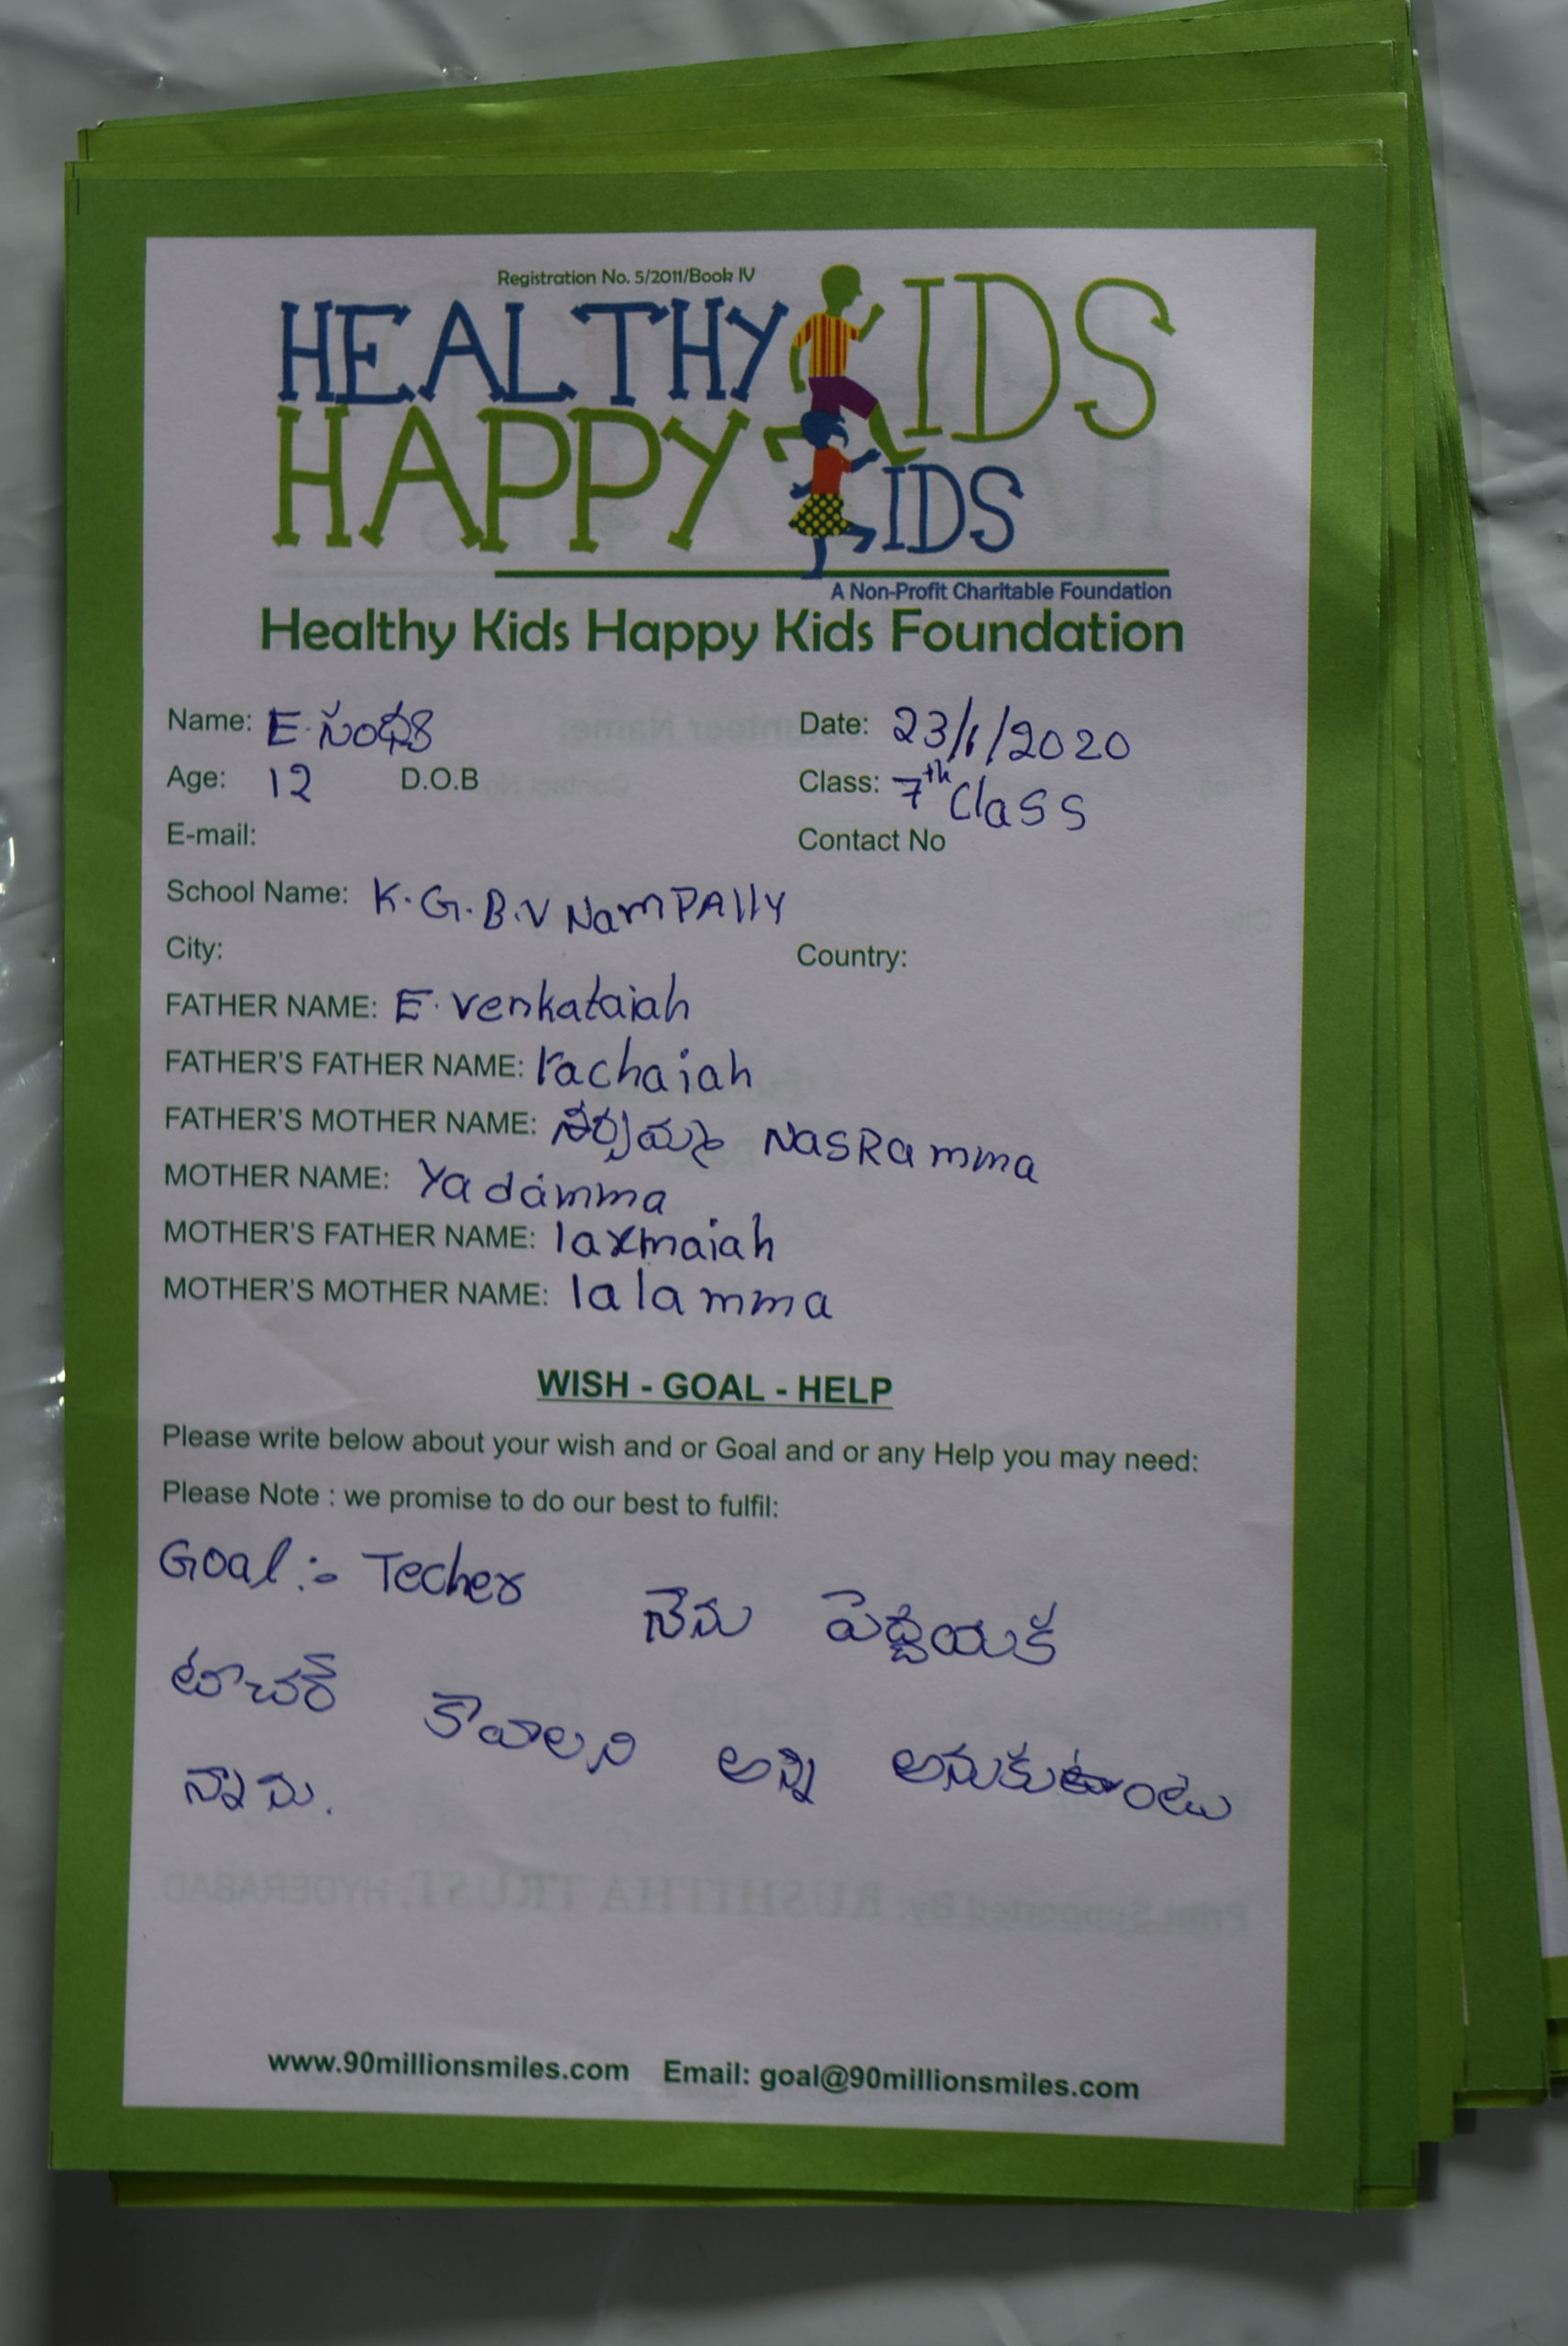 Registration No. 5/2011/Book IV
HEALTHY KIDS
HAPPY KIDS
A Non-Profit Charitable Foundation
Healthy Kids Happy Kids Foundation
Name: E. Date: 23/1/2020
Age: 12 D.O.B Class: 7th Class
E-mail: Contact No
School Name: K.G.B.V NamPAlly
City: Country:
FATHER NAME: E. venkataiah
FATHER'S FATHER NAME: rachaiah
FATHER'S MOTHER NAME: NasRamma
MOTHER NAME: Yadamma
MOTHER'S FATHER NAME: laxmaiah
MOTHER'S MOTHER NAME: lalamma
WISH - GOAL - HELP
Please write below about your wish and or Goal and or any Help you may need:
Please Note : we promise to do our best to fulfil:
Goal :- Techer నేను
టాచర్ కావాలని అన్ని అనుకుంటు
న్నాను.
www.90millionsmiles.com Email: goal@90millionsmiles.com